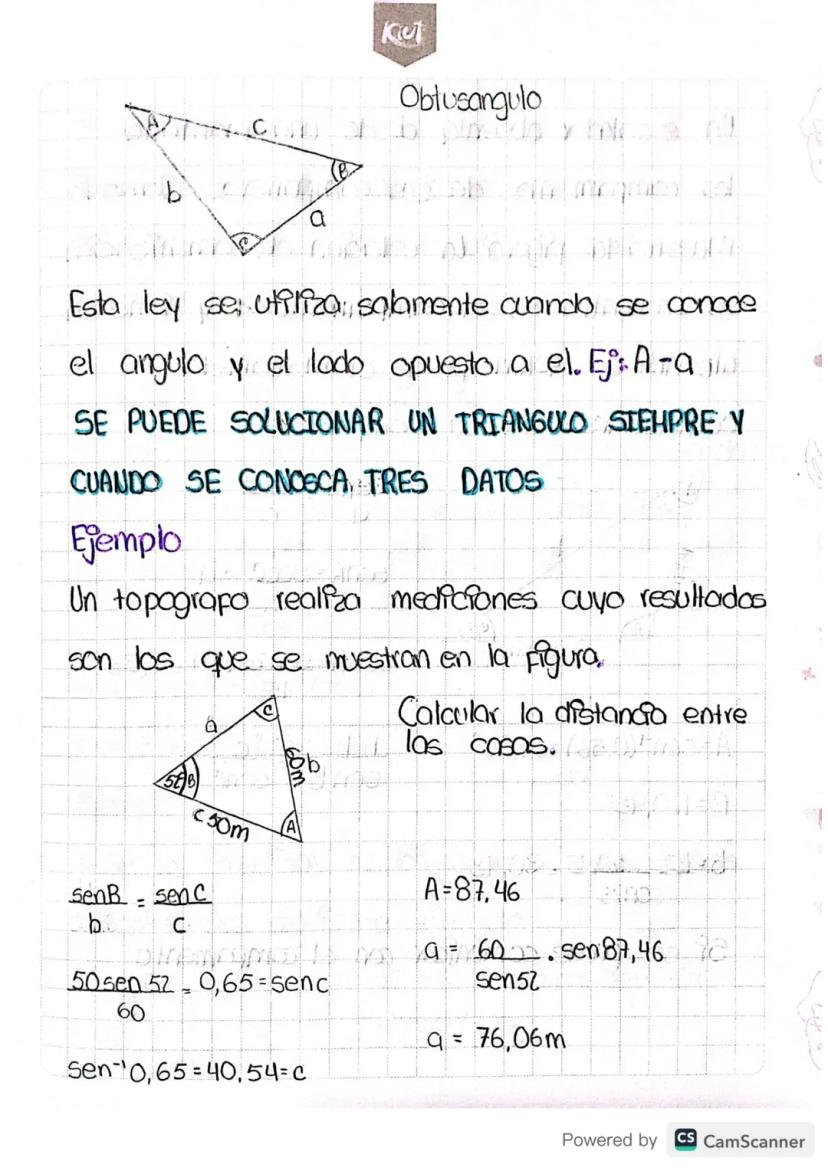 Kiut
Obtusangulo
A
c
B
b
a
C
Esta ley se utiliza solamente cuando se conoce
el angulo y el lado opuesto a el. Ej: A-a
SE PUEDE SOLUCIONAR UN TRIANGULO SIEMPRE Y
CUANDO SE CONOSCA TRES DATOS
Ejemplo
Un topografo realiza mediciones cuyo resultados
son los que se muestran en la figura.
Calcular la distancia entre
las casas.
a
C
60m b
52 B
c 50m
A
senB = senC
b c
50 sen 52 = 0,65 = sen c
60
sen⁻¹ 0,65 = 40,54 = c
A=87,46
a = 60 . sen 87,46
sen 52
a = 76,06m
Powered by CS CamScanner